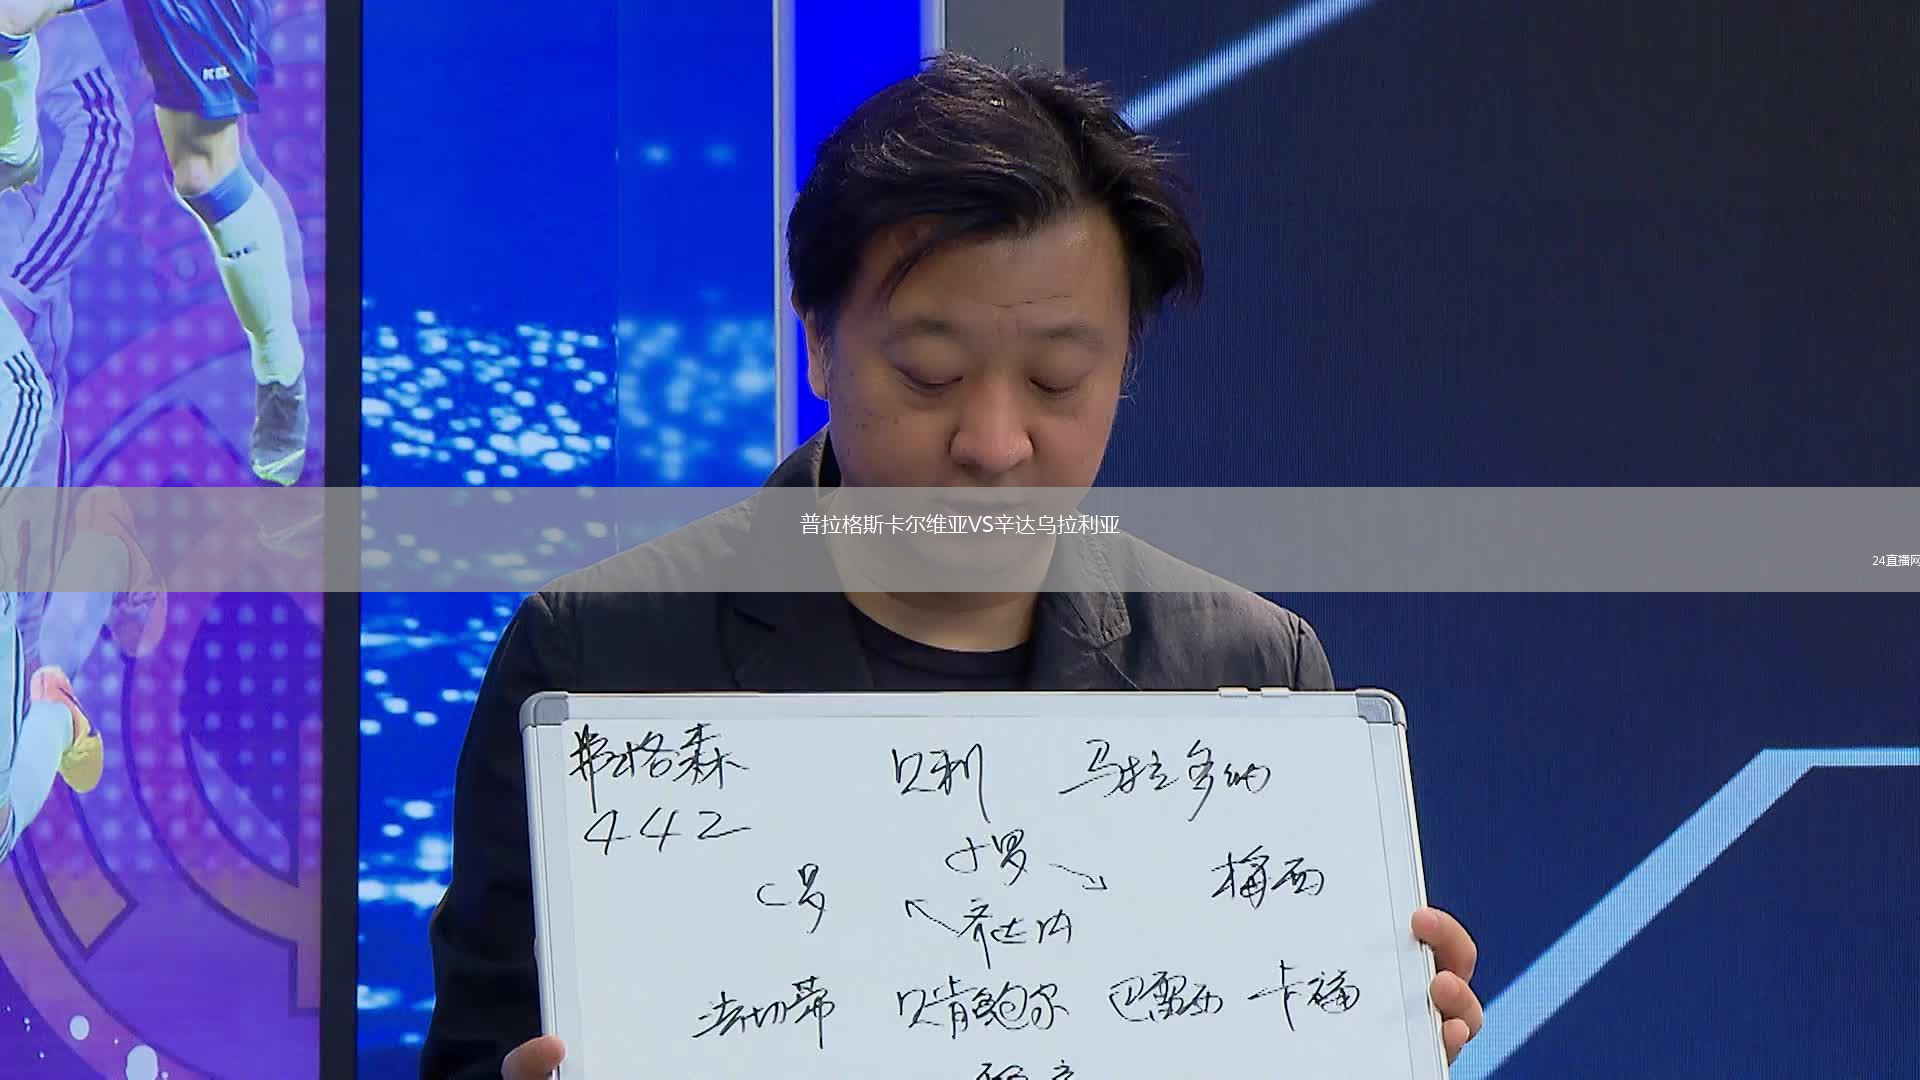 普拉格斯卡尔维亚VS辛达乌拉利亚
24直播网
弗格森 贝利 马拉多纳
442
小罗
C罗 梅西
齐达内
法切蒂 贝肯鲍尔 巴雷西 卡福